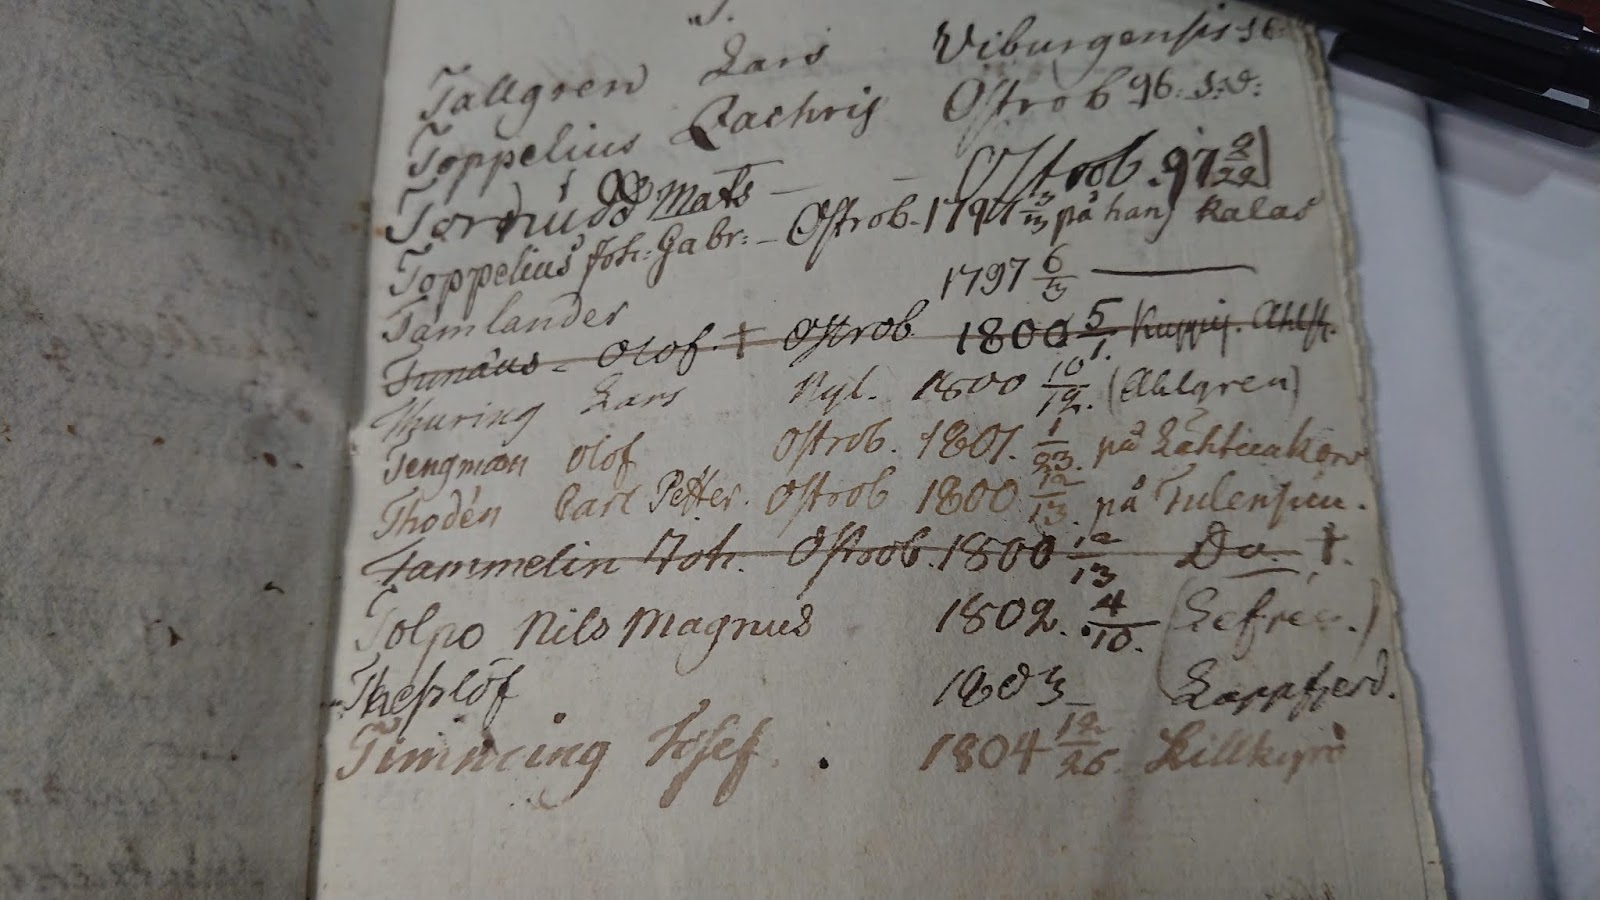 T.
Tallgren Lars Viburgensis 96.
Toppelius Zachris Ostrob 96. s:d:
Mats Ostrob. 97 2/22
Toppelius Joh: Gabr: Ostrob. 1797 3/3 på hans kalas
Tamlander 1797 6/3
Tunæus Olof † Ostrob 1800 5/1.
Thuring Lars Nyl. 1800 10/12. (Ahlgren)
Tengman Olof Ostrob. 1801. 1/23. på
Thodén Carl Petter. Ostrob 1800 12/13. på
Tammelin Joh. Ostrob. 1800 12/13 Do †.
Tolpo Nils Magnus 1802. 4/10.
Theslöf 1803 Lappfjerd.
Josef. 1804 12/26. Lillkyro